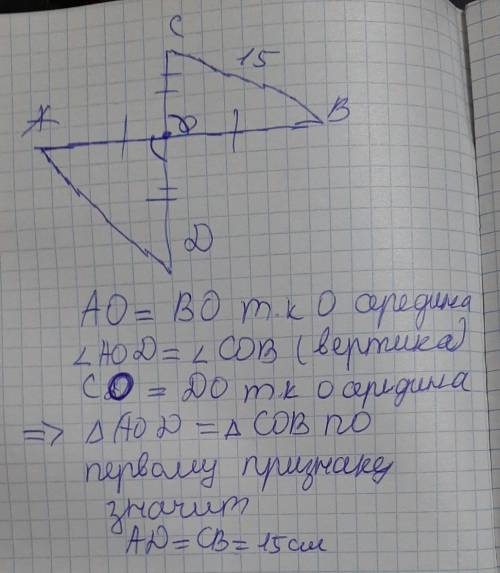 C
15
A
O
B
D
AO = BO т.к O середина
∠AOD = ∠COB (вертика)
CO = DO т.к O середина
=> △AOD = △COB по
первому признаку
значит
AD = CB = 15см